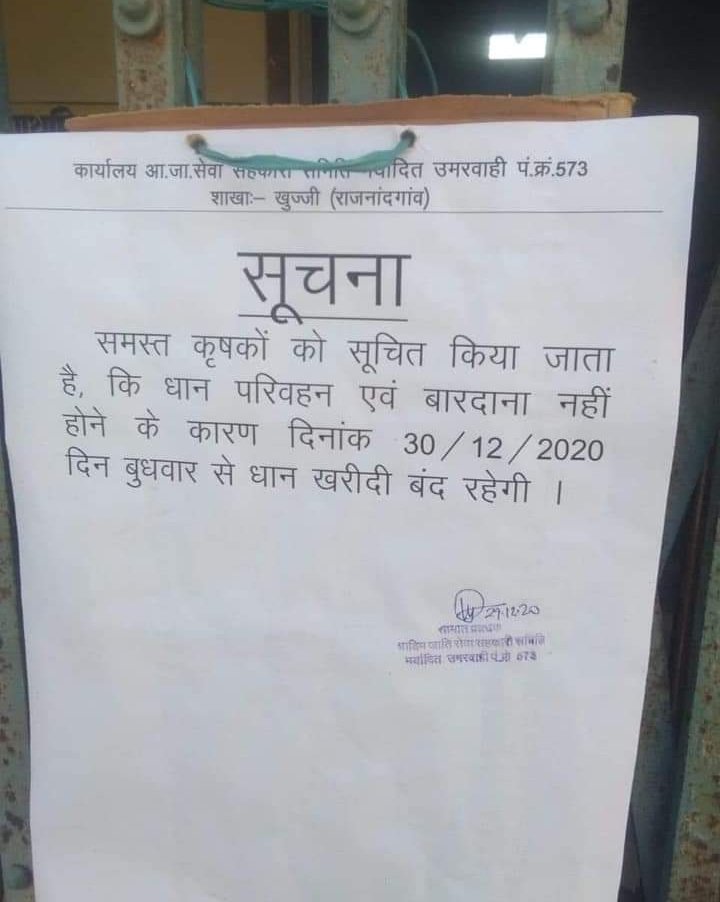 कार्यालय आ.जा.सेवा सहकारी समिति मर्यादित उमरवाही पं.क्रं.573
शाखाः– खुज्जी (राजनांदगांव)
सूचना
समस्त कृषकों को सूचित किया जाता
है, कि धान परिवहन एवं बारदाना नहीं
होने के कारण दिनांक 30/12/2020
दिन बुधवार से धान खरीदी बंद रहेगी ।
29.12.20
आदिम जाति सेवा सहकारी समिति
मर्यादित उमरवाही पं.क्रं 573